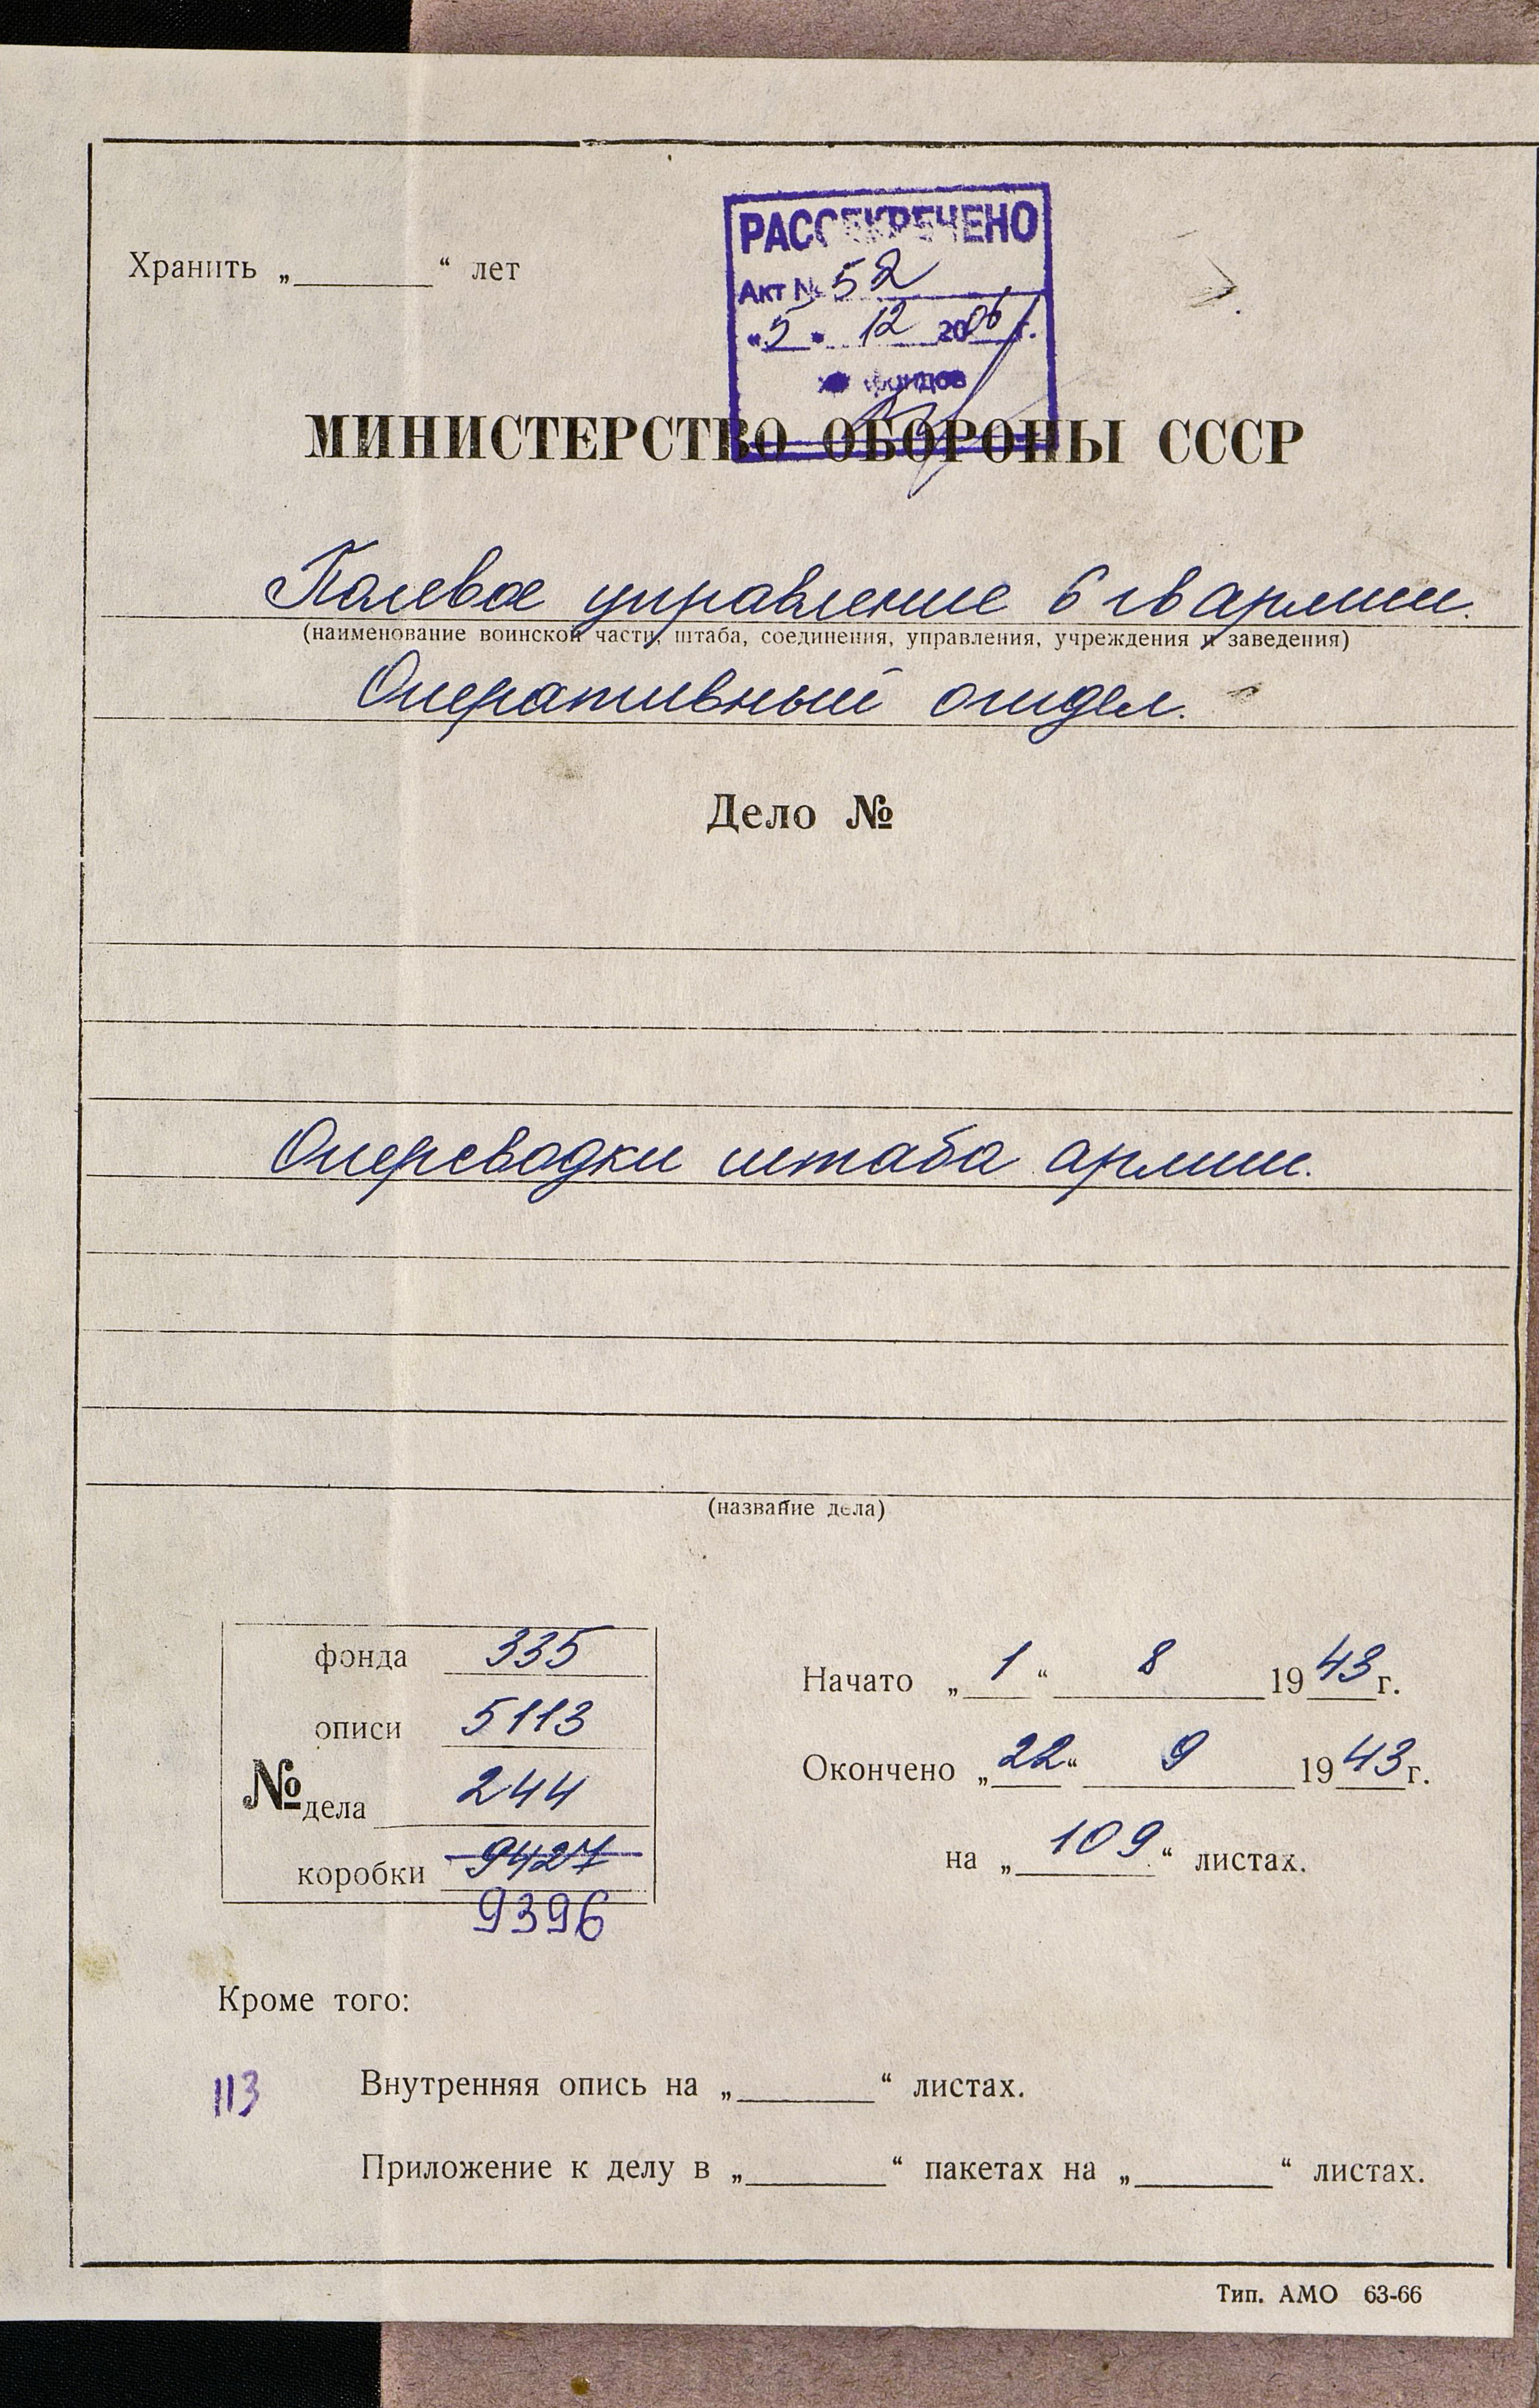 РАССЕКРЕЧЕНО
Хранить „ “ лет
Акт № 52
«5» 12 2006 г.
фондов
МИНИСТЕРСТВО ОБОРОНЫ СССР
Полевое управление 6 гв армии.
(наименование воинской части, штаба, соединения, управления, учреждения и заведения)
Оперативный отдел.
Дело №
Оперсводки штаба армии.
(название дела)
фонда 335
описи 5113
№ дела 244
коробки 9427
9396
Начато „1“ 8 1943 г.
Окончено „22“ 9 1943 г.
на „109“ листах.
Кроме того:
113
Внутренняя опись на „ “ листах.
Приложение к делу в „ “ пакетах на „ “ листах.
Тип. АМО 63-66